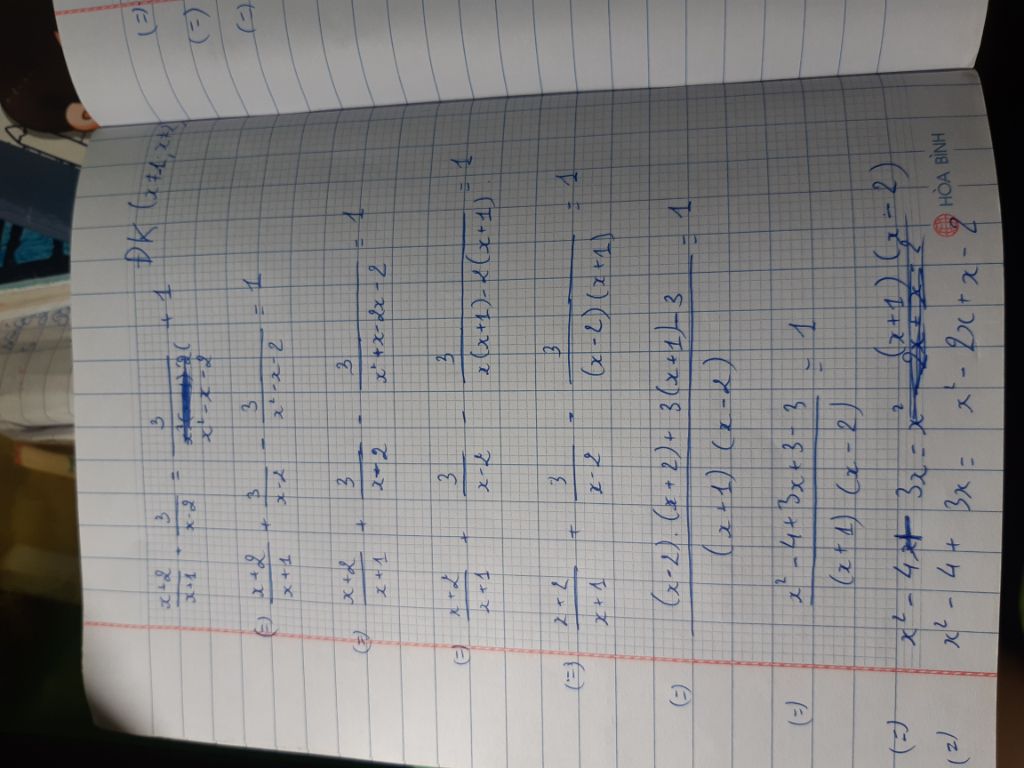 ĐK (x≠1, x≠
x+2/x+1 + 3/x-2 = 3/x²-x-2 + 1
(=) x+2/x+1 + 3/x-2 - 3/x²-x-2 = 1
(=) x+2/x+1 + 3/x-2 - 3/x²+x-2x-2 = 1
(=) x+2/x+1 + 3/x-2 - 3/x(x+1)-2(x+1) = 1
(=) x+2/x+1 + 3/x-2 - 3/(x-2)(x+1) = 1
(=) (x-2).(x+2)+3(x+1)-3/(x+1)(x-2) = 1
(=) x²-4+3x+3-3/(x+1)(x-2) = 1
(=) x² - 4 3x = (x+1)(x-2)
(=) x² - 4 + 3x = x² - 2x + x - 2
HÒA BÌNH
(=)
(=)
(=)